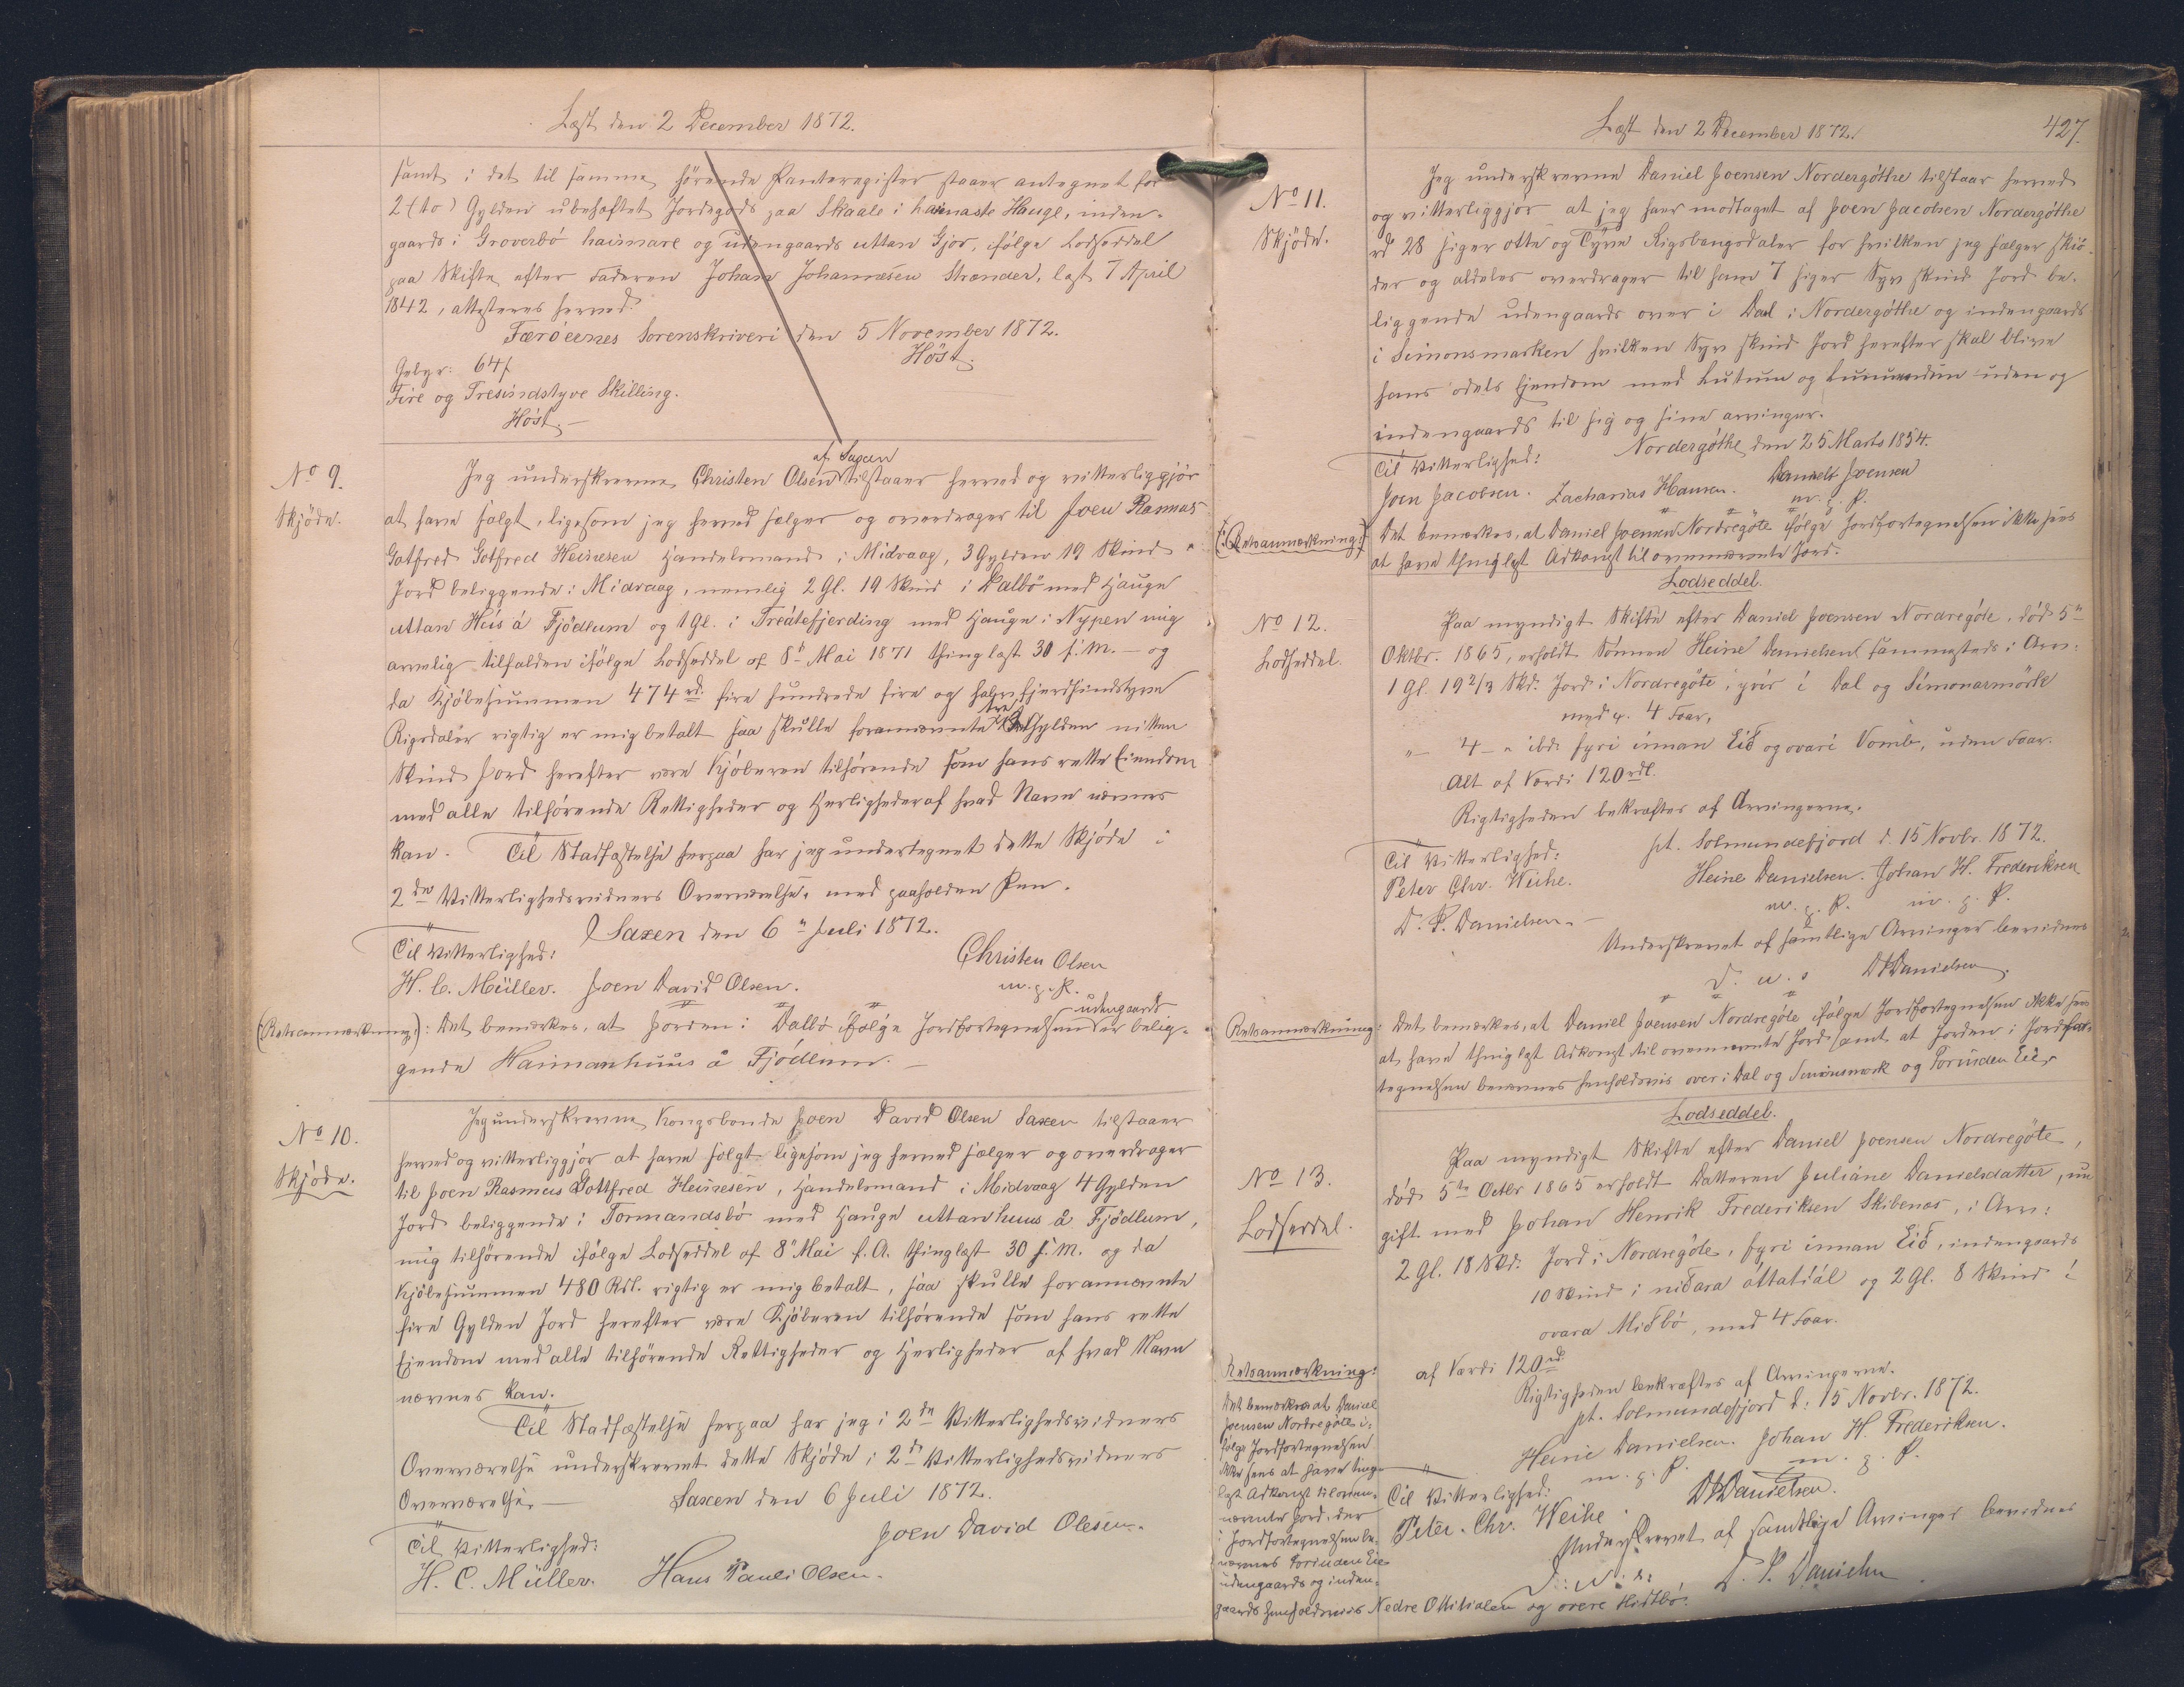 Læst den 2 December 1872.
samt i det til samme hørende Panteregister staaer antegnet for
2 (to) Gylden ubehæftet Jordegods paa Skaale i haimaste Hauge, inden-
gaards i Groverbö haimare og udengaards uttan Gjor, ifølge Lodseddel
paa Skifte efter Faderen Johan Johannesen Strænder, læst 7 April
1842, attesteres herved.
Færöernes Sorenskriveri den 5 November 1872.
Höst.
Gebyr: 64 ß
Fire og Tresindstyve Skilling.
Höst.
No 9.
Skjöde.
Jeg underskrevne Christen Olsen af Saxen tilstaaer herved og vitterliggjör
at have solgt, ligesom jeg herved sælger og overdrager til Joen Rasmus
Gotfred Gotfred Heinesen Handelsmand i Midvaag, 3 Gylden 19 Skind
Jord beliggende i Midvaag, nemlig 2 Gl. 19 Skind i Dalbö med Hauge
uttan Hús á Fjödlum og 1 Gl. i Treátefjerding med Hauge i Nypen mig
arvelig tilfalden ifölge Lodseddel af 8de Mai 1871 thinglæst 30 s. M. — og
da Kjöbesummen 474 rd. fire hundrede fire og halvfjerdsindstyve
Rigsdaler rigtig er mig betalt saa skulle forannævnte tre Gylden nitten
Skind Jord herefter være Kjöberen tilhörende som hans rette Eiendom
med alle tilhörende Rettigheder og Herligheder af hvad Navn nævnes
kan. Til Stadfæstelse herpaa har jeg undertegnet dette Skjöde i
2de Vitterlighedsvidners Overværelse, med paaholden Pen.
Saxen den 6te Juli 1872.
Til Vitterlighed:
Christen Olsen
H. C. Müller. Joen David Olsen.
m. p. P.
(Retsanmærkning): Det bemærkes, at Jorden i Dalbö ifølge Jordfortegnelsen er udengaards belig-
gende Haimanhuus å Fjödlum. —
No 10.
Skjöde.
Jeg underskrevne Kongsbonde Joen David Olsen Saxen tilstaaer
herved og vitterliggjör at have solgt ligesom jeg herved sælger og overdrager
til Joen Rasmus Gottfred Heinesen, Handelsmand i Midvaag 4 Gylden
Jord beliggende i Tormandsbö med Hauge uttanhuus å Fjödlum,
mig tilhörende ifölge Lodseddel af 8de Mai f. A. thinglæst 30 s. M. og da
Kjöbesummen 480 Rdl. rigtig er mig betalt, saa skulle forannævnte
fire Gylden Jord herefter være Kjöberen tilhörende som hans rette
Eiendom med alle tilhörende Rettigheder og Herligheder af hvad Navn
nævnes kan.
Til Stadfæstelse herpaa har jeg i 2de Vitterlighedsvidners
Overværelse underskrevet dette Skjöde i 2de Vitterlighedsvidners
Overværelse. — Saxen den 6 Juli 1872.
Joen David Olesen.
Til Vitterlighed:
H. C. Müller. Hans Pauli Olsen.
Læst den 2 December 1872.
427.
No 11.
Skjöde.
Jeg underskrevne Daniel Joensen Nordergóthe tilstaar herved
og vitterliggjör at jeg haver modtaget af Joen Jacobsen Nordergóthe
rd 28 siger otte og Tyve Rigsbangsdaler for hvilken jeg sælger skiö-
der og aldeles overdrager til ham 7 siger Syv skind Jord be-
liggende udengaards over i Dal i Nordergóthe og indengaards
i Seimonsmarken hvilken Syv skind Jord herefter skal blive
hans odels Ejendom med Lutum og Lunnindun uden og
indengaards til sig og sine arvinger.
Nordergóthe den 25 Marts 1854.
Til Vitterlighed:
Joen Jacobsen. Zacharias Hansen. Daniels Joensen
m. p. P.
(Retsanmærkning:) Det bemærkes, at Daniel Joensen Nordregöte ifölge Jordfortegnelsen ikke sees
at have thinglæst Adkomst til ovennævnte Jord.
Lodseddel.
No 12.
Lodseddel.
Paa myndigt Skifte efter Daniel Joensen Nordregöte, död 5te
Oktbr. 1865, erholdt Sønnen Heine Danielsen sammesteds i Arv:
1 Gl. 19 2/3 Skd. Jord i Nordregöte, yvir i Dal og Símonarmörk
med 4 Faar,
" — 4 — " ibd. fyri innan Eið og ovari Vomb, uden Faar.
Alt af Værdi 120 rdl.
Rigtigheden bekræftes af Arvingerne.
pt. Solmundefjord d. 15 Novbr. 1872.
Til Vitterlighed:
Peter Chr. Weihe.
Heine Danielsen. Johan H. Frederiksen
m. p. P. m. p. P.
D. P. Danielsen.
Underskrevet af samtlige Arvinger bevidnes
D. u. s. D P Danielsen.
Retsanmærkning: Det bemærkes, at Daniel Joensen Nordregöte ifölge Jordfortegnelsen ikke sees
at have thinglæst Adkomst til ovennævnte Jord samt at Jorden i Jordfor-
tegnelsen benævnes henholdsvis over i Dal og Simonsmørk og Forinden Eie.
Lodseddel.
No 13.
Lodseddel.
Paa myndigt Skifte efter Daniel Joensen Nordregöte,
död 5te Octbr 1865 erholdt Datteren Juliane Danielsdatter, nu
gift med Johan Henrik Frederiksen Skibenæs, i Arv:
2 Gl. 18 Skd. Jord i Nordregöte, fyri innan Eið, indengaards
10 Skind i niðara áttatíál og 2 Gl. 8 Skind i
ovara Miðbö, med 4 Faar.
af Værdi 120 rd.
Rigtigheden bekræftes af Arvingerne.
pt. Solmundefjord d: 15 Novbr. 1872.
Heine Danielsen. Johan H. Frederiksen.
m. p. P. m. p. P.
Til Vitterlighed:
Peter Chr. Weihe. D P Danielsen.
Underskrevet af samtlige Arvinger bevidnes
D. u. s. D. P. Danielsen
Retsanmærkning:
Det bemærkes at Daniel
Joensen Nordregöte i-
følge Jordfortegnelsen
ikke sees at have ting-
læst Adkomst til oven-
nævnte Jord, der
i Jordfortegnelsen be-
nævnes Forinden Eie
udengaards og inden-
gaards henholdsvis Nedre Ottitialen og overe Midtbö.